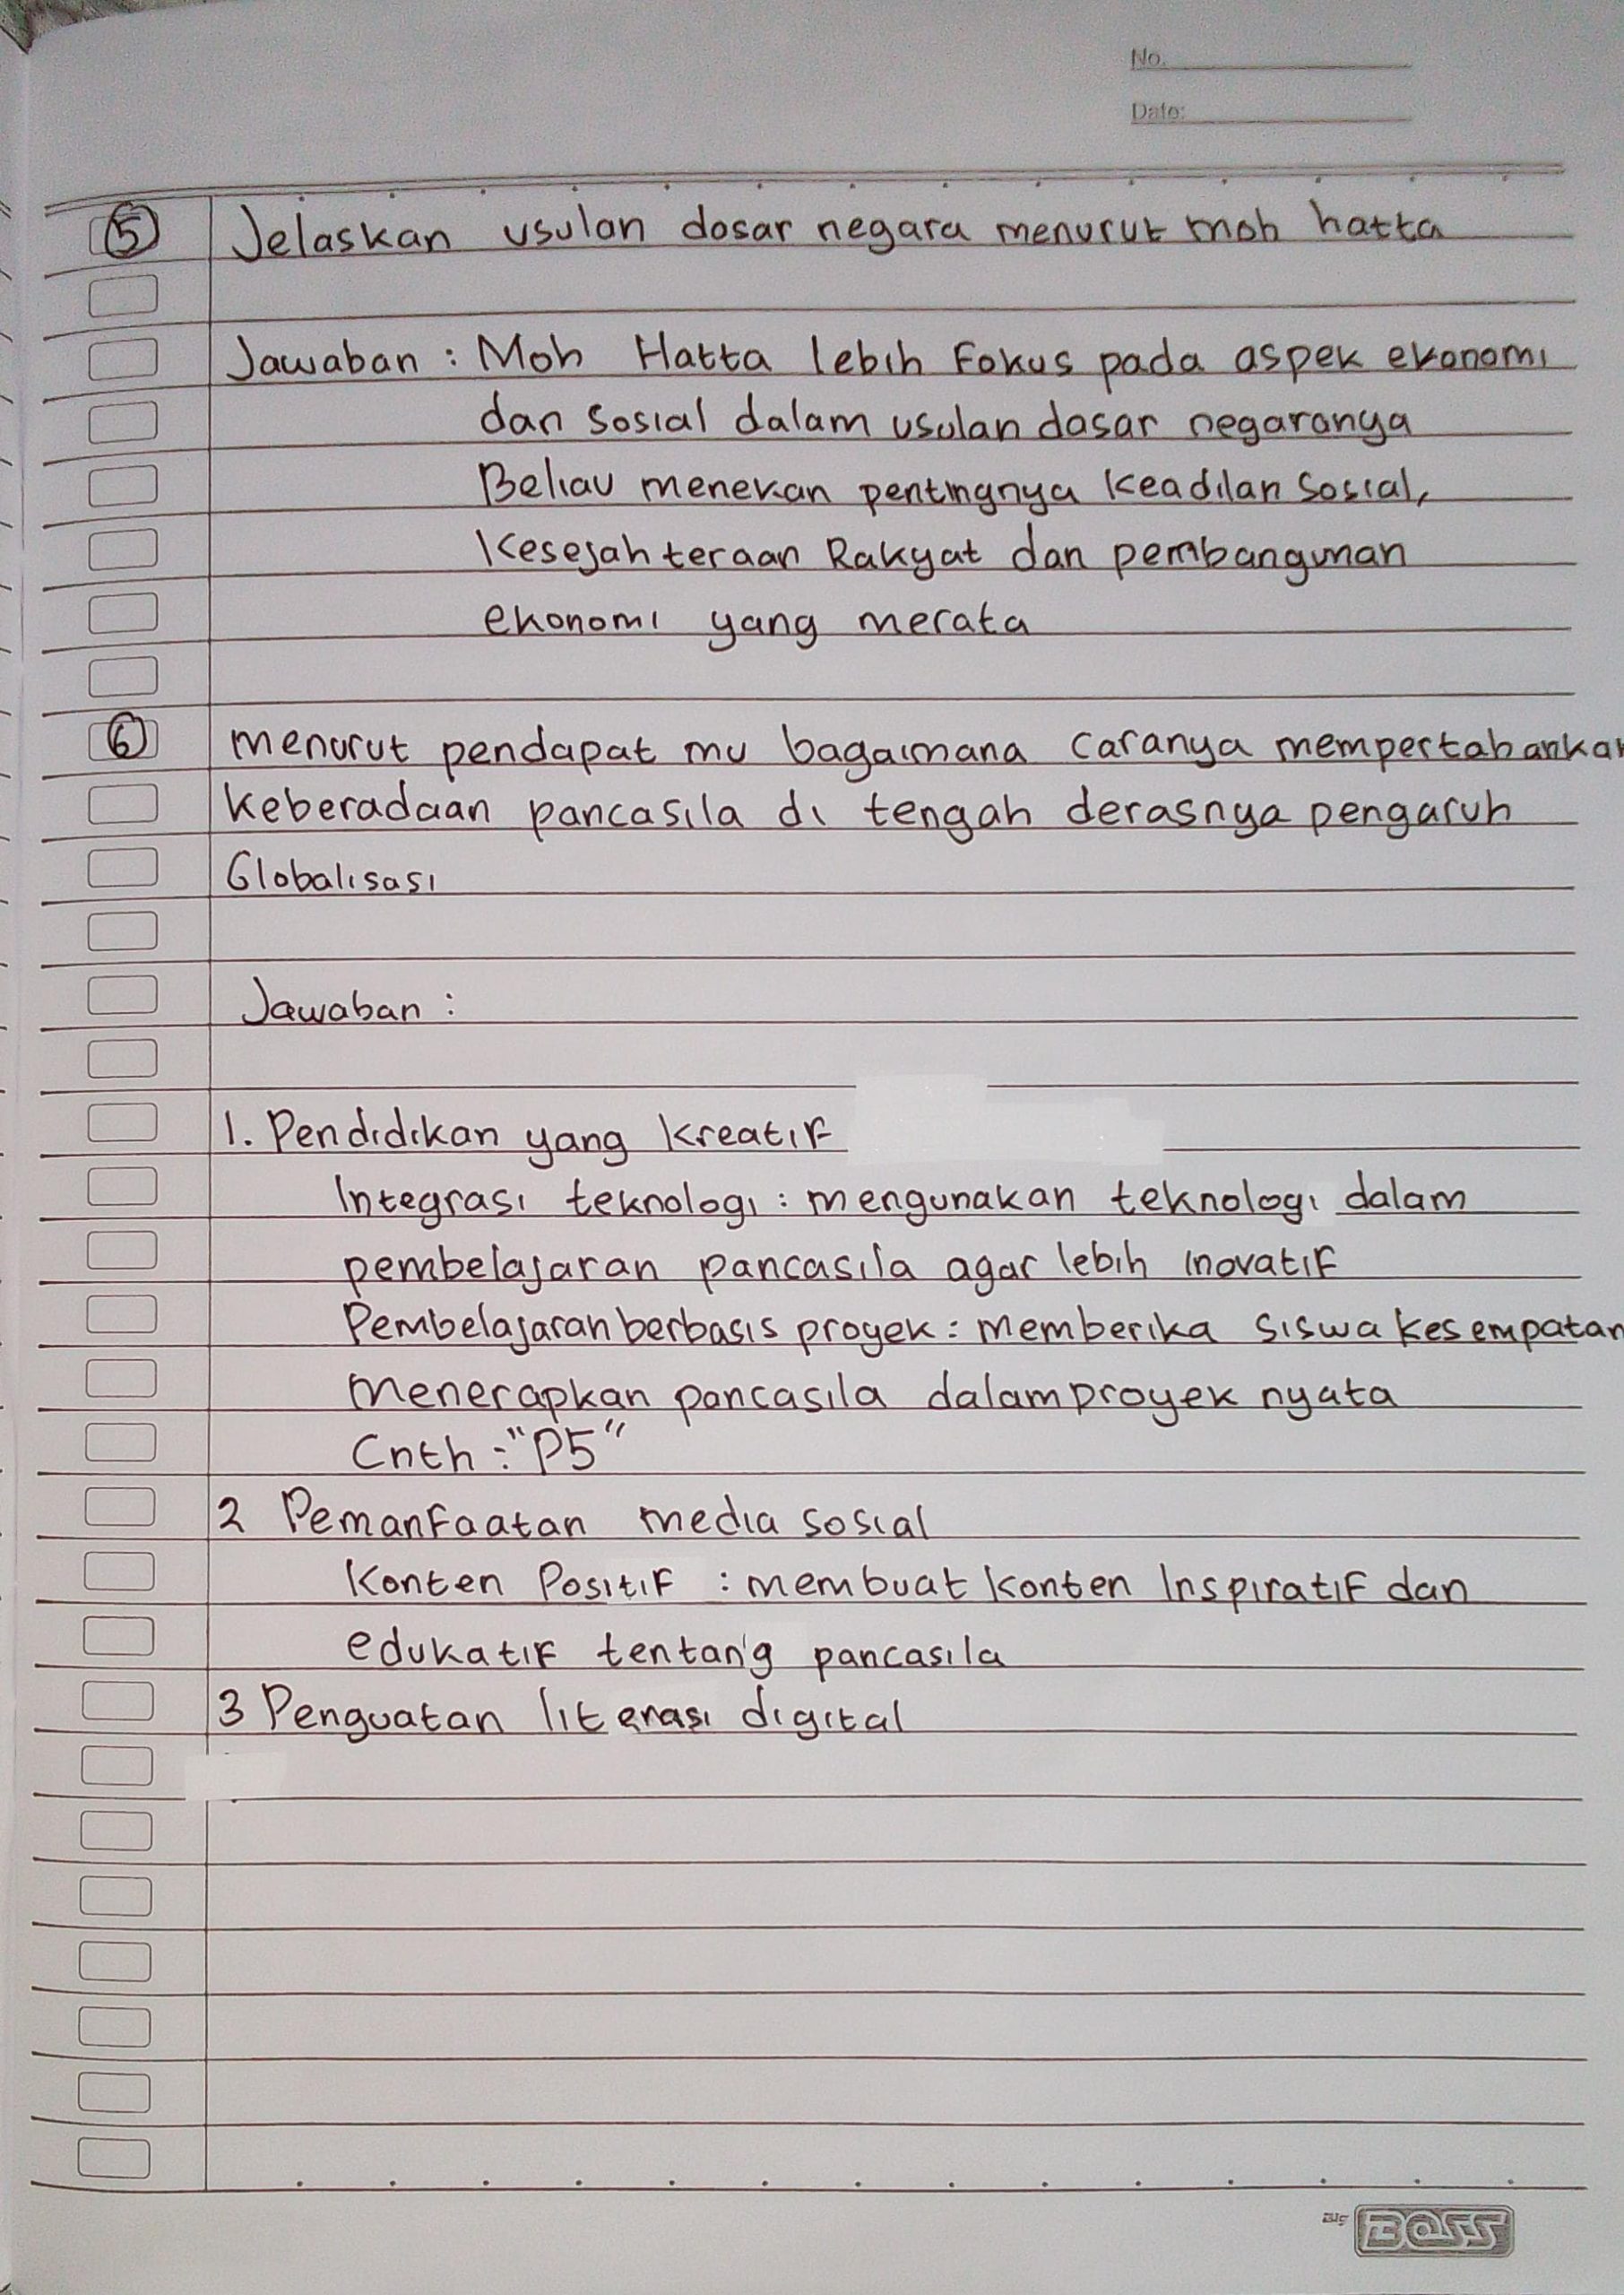 No.
Date:
5 Jelaskan usulan dosar negara menurut moh hatta
Jawaban : Moh Hatta lebih Fokus pada aspek ekonomi
dan sosial dalam usulan dasar negaranya
Beliau menekan pentingnya Keadilan Sosial,
Kesejahteraan Rakyat dan pembangunan
ekonomi yang merata
6 menurut pendapat mu bagaimana caranya mempertahankan
keberadaan pancasila di tengah derasnya pengaruh
Globalisasi
Jawaban :
1. Pendidikan yang Kreatif
Integrasi teknologi : mengunakan teknologi dalam
pembelajaran pancasila agar lebih inovatif
Pembelajaran berbasis proyek : memberika siswa kesempatan
menerapkan pancasila dalam proyek nyata
Cnth : "P5"
2 Pemanfaatan media sosial
Konten Positif : membuat konten Inspiratif dan
edukatif tentang pancasila
3 Penguatan literasi digital
BIG BOSS